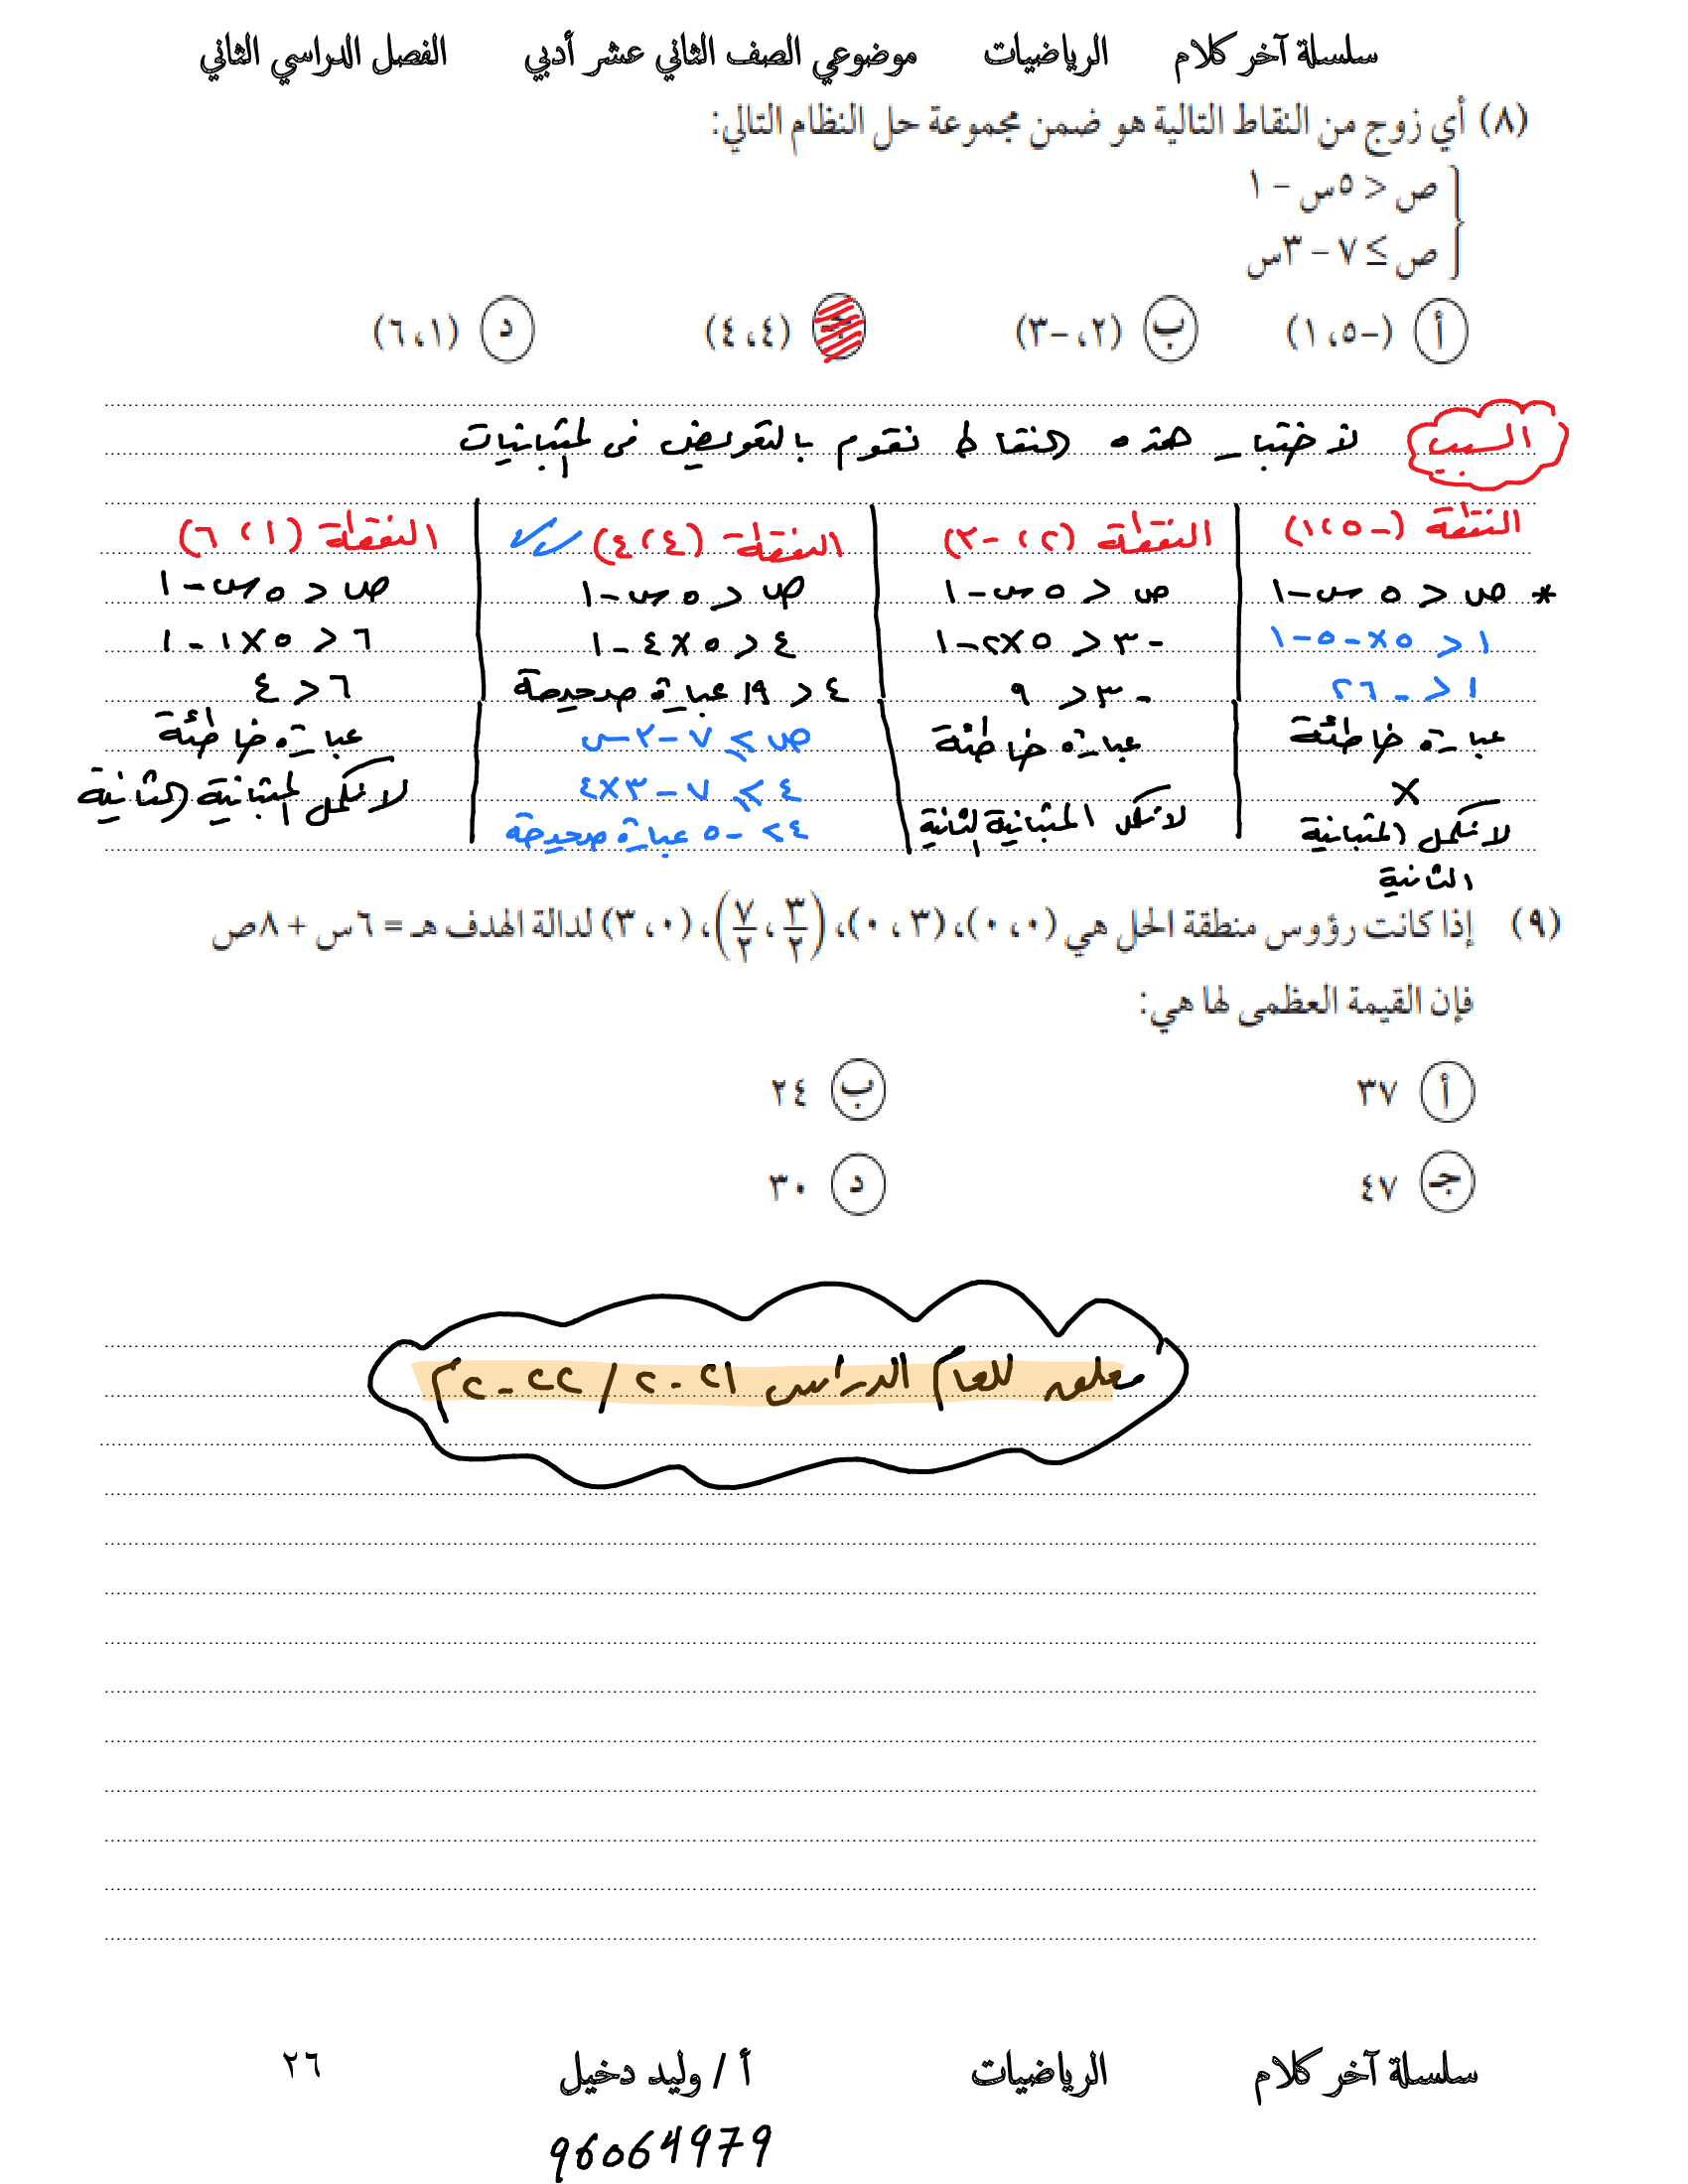 سلسلة آخر كلام الرياضيات موضوعي الصف الثاني عشر أدبي الفصل الدراسي الثاني
(٨) أي زوج من النقاط التالية هو ضمن مجموعة حل النظام التالي:
ص < ٥س - ١
ص ≥ ٧ - ٣س
أ (-٥، ١) ب (٢، -٣) جـ (٤، ٤) د (١، ٦)
السبب لاختبار هذه النقاط نقوم بالتعويض في المتباينات
النقطة (-٥، ١) النقطة (٢، -٣) النقطة (٤، ٤) النقطة (١، ٦)
* ص < ٥س - ١ ص < ٥س - ١ ص < ٥س - ١ ص < ٥س - ١
١ < ٥×-٥-١ -٣ < ٥×٢-١ ٤ < ٥×٤-١ ٦ < ٥×١-١
١ < -٢٦ -٣ < ٩ ٤ < ١٩ عبارة صحيحة ٦ < ٤
عبارة خاطئة عبارة خاطئة ص ≥ ٧-٣س عبارة خاطئة
× ٤ ≥ ٧-٣×٤
لا نكمل المتباينة الثانية لا نكمل المتباينة الثانية ٤ ≥ -٥ عبارة صحيحة لا نكمل المتباينة الثانية
(٩) إذا كانت رؤوس منطقة الحل هي (٠، ٠)، (٣، ٠)، (٣/٢، ٧/٢)، (٠، ٣) لدالة الهدف هـ = ٦س + ٨ص
فإن القيمة العظمى لها هي:
أ ٣٧ ب ٢٤
جـ ٤٧ د ٣٠
معلق للعام الدراسي ٢٠٢١/٢٠٢٢م
سلسلة آخر كلام الرياضيات أ / وليد دخيل ٢٦
96064979